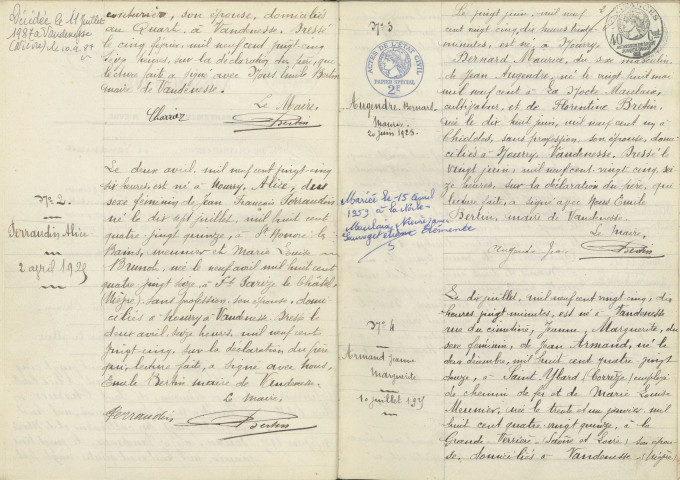 Décédée le 11 Juillet
1987 à Vandenesse
(Nièvre) le
couturière, son épouse, domiciliés
au Quart, à Vandenesse. Dressé
le cinq février, mil neuf cent vingt cinq
seize heures, sur la déclaration du père, qui
lecture faite a signé avec Nous Emile Bertin
maire de Vandenesse.
Le Maire,
Charrier
Bertin
N° 2.
Perraudin Alice
2 avril 1925
Le deux avril, mil neuf cent vingt-cinq
six heures, est né à Nourry, Alice, du
sexe féminin de Jean François Perraudin
né le dix sept juillet, mil huit cent
quatre vingt quinze, à St Honoré les
Bains, meunier et Marie Louise
Brunot, née le neuf avril mil huit cent
quatre vingt seize, à St Parize le Châtel
(Nièvre), sans profession, son épouse, domi-
ciliés à Nourry à Vandenesse. Dressé le
deux avril, seize heures, mil neuf cent
vingt-cinq, sur la déclaration du père
qui, lecture faite, a signé avec nous,
Emile Bertin maire de Vandenesse.
Le maire,
Perraudin
Bertin
N° 3
ACTES DE L'ETAT CIVIL
PAPIER SPÉCIAL
2F
40
Augendre Bernard
Maurice
20 juin 1925.
Le vingt juin, mil neuf
cent vingt cinq, dix heures vingt
minutes, est né, à Nourry,
Bernard Maurice, du sexe masculin,
de Jean Augendre, né le vingt huit mai
mil neuf cent à La Nocle Maulaix,
cultivateur, et de Florentine Bretin,
née le dix huit juin, mil neuf cent un à
Chiddes, sans profession, son épouse, domi-
ciliés à Nourry, Vandenesse. Dressé le
vingt juin, mil neuf cent vingt cinq, sei-
ze heures, sur la déclaration du père, qui
lecture faite, a signé avec Nous Emile
Bertin, maire de Vandenesse.
Le Maire,
Augendre Jean
Bertin
Mariée le 15 Avril
1953 à la Nocle
Maulaix Nièvre avec
Sauvaget Clémence
N° 4
Armand Jeanne
Marguerite
10 juillet 1925
Le dix juillet, mil neuf cent vingt cinq, dix
heures vingt minutes, est né à Vandenesse
rue du cimetière, Jeanne Marguerite, du
sexe féminin, de Jean Armand, né le
deux décembre, mil huit cent quatre vingt
douze, à Saint Ybard (Corrèze) employé
de chemin de fer et de Marie Louise
Meunier, née le trente et un janvier mil
huit cent quatre-vingt quinze, à la
Grande Verrière (Saône et Loire) son épou-
se, domiciliés à Vandenesse (Nièvre)